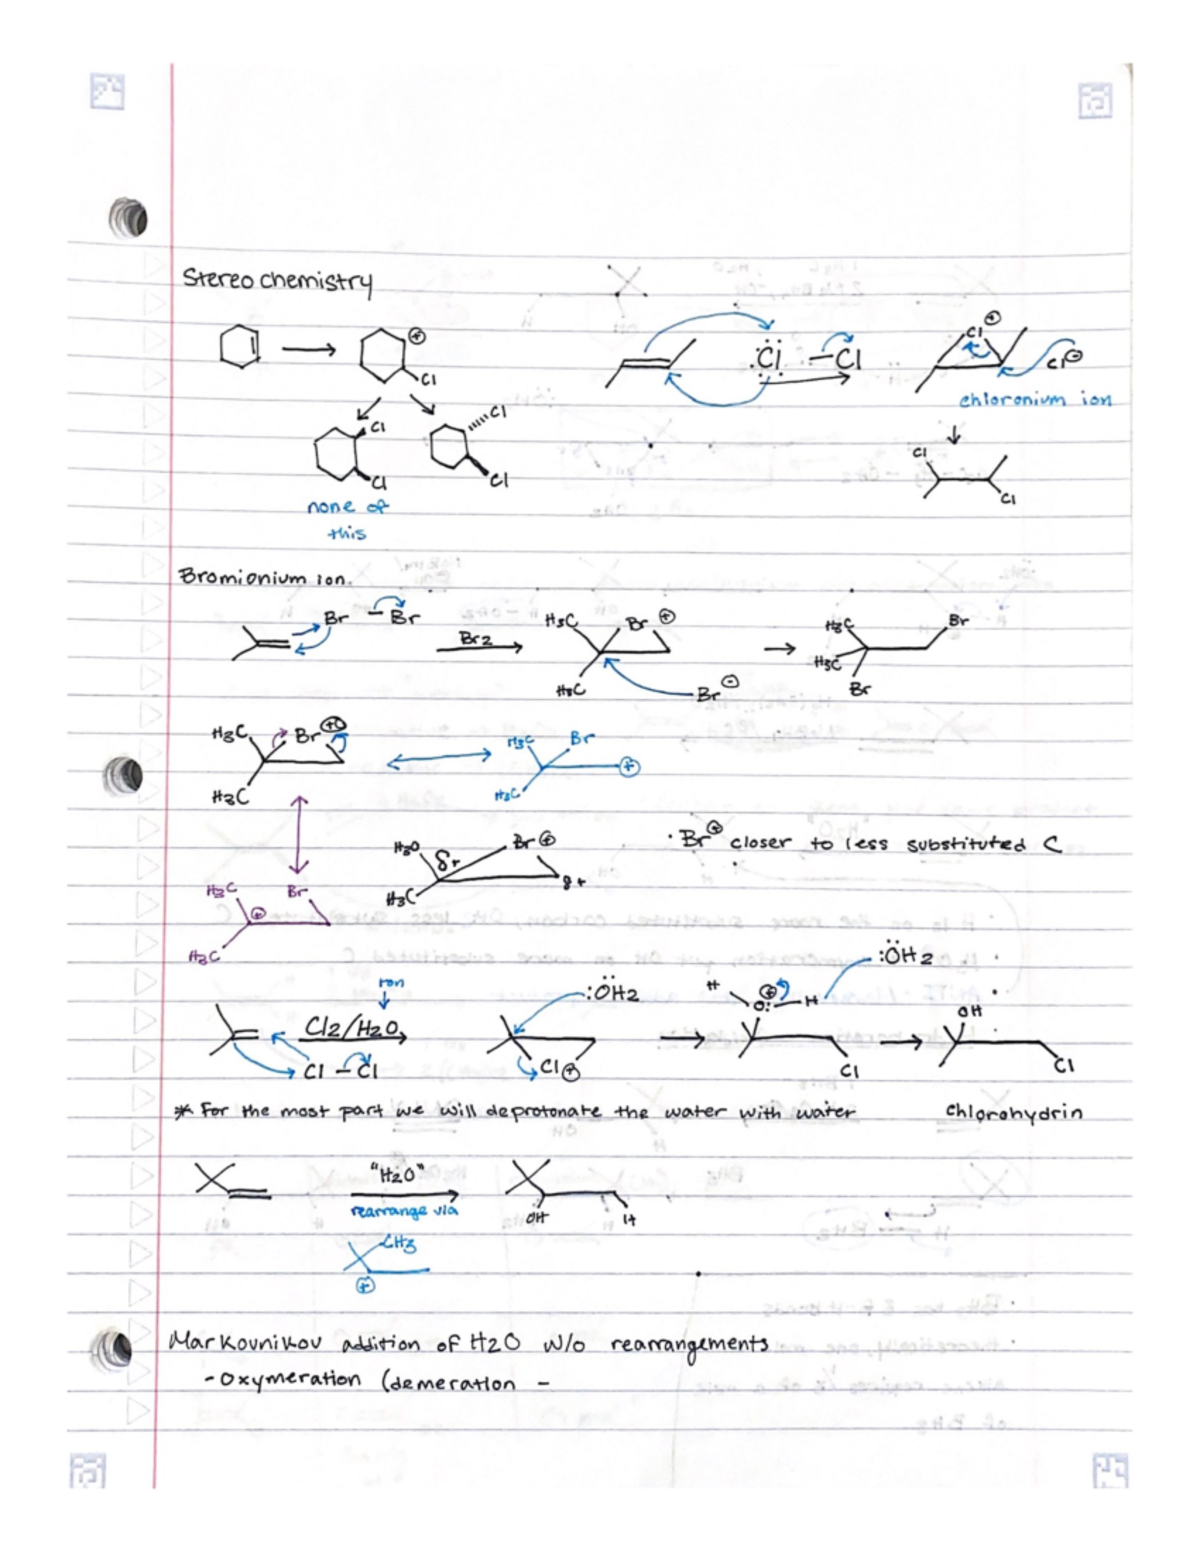 Stereochemistry
⊕
Cl
Cl
Cl
Cl
Cl
none of
this
:Cl - Cl
Cl ⊕
Cl ⊖
chloronium ion
Cl
Cl
Bromionium ion.
Br - Br
Br2
H3C Br ⊕
H3C
Br ⊖
H3C Br
H3C
Br
H3C Br ⊕
H3C
H3C Br
⊕
H3C
H3C Br ⊕
H3C
· Br⊕ closer to less substituted C
H3C Br
⊕
H3C
Cl2/H2O
Cl - Cl
:ÖH2
Cl⊕
:ÖH2
H ⊕ O: - H
Cl
OH
Cl
* For the most part we will deprotonate the water with water
Chlorohydrin
"H2O"
rearrange via
CH3
⊕
OH H
Markovnikov addition of H2O w/o rearrangements
- Oxymeration (demeration -